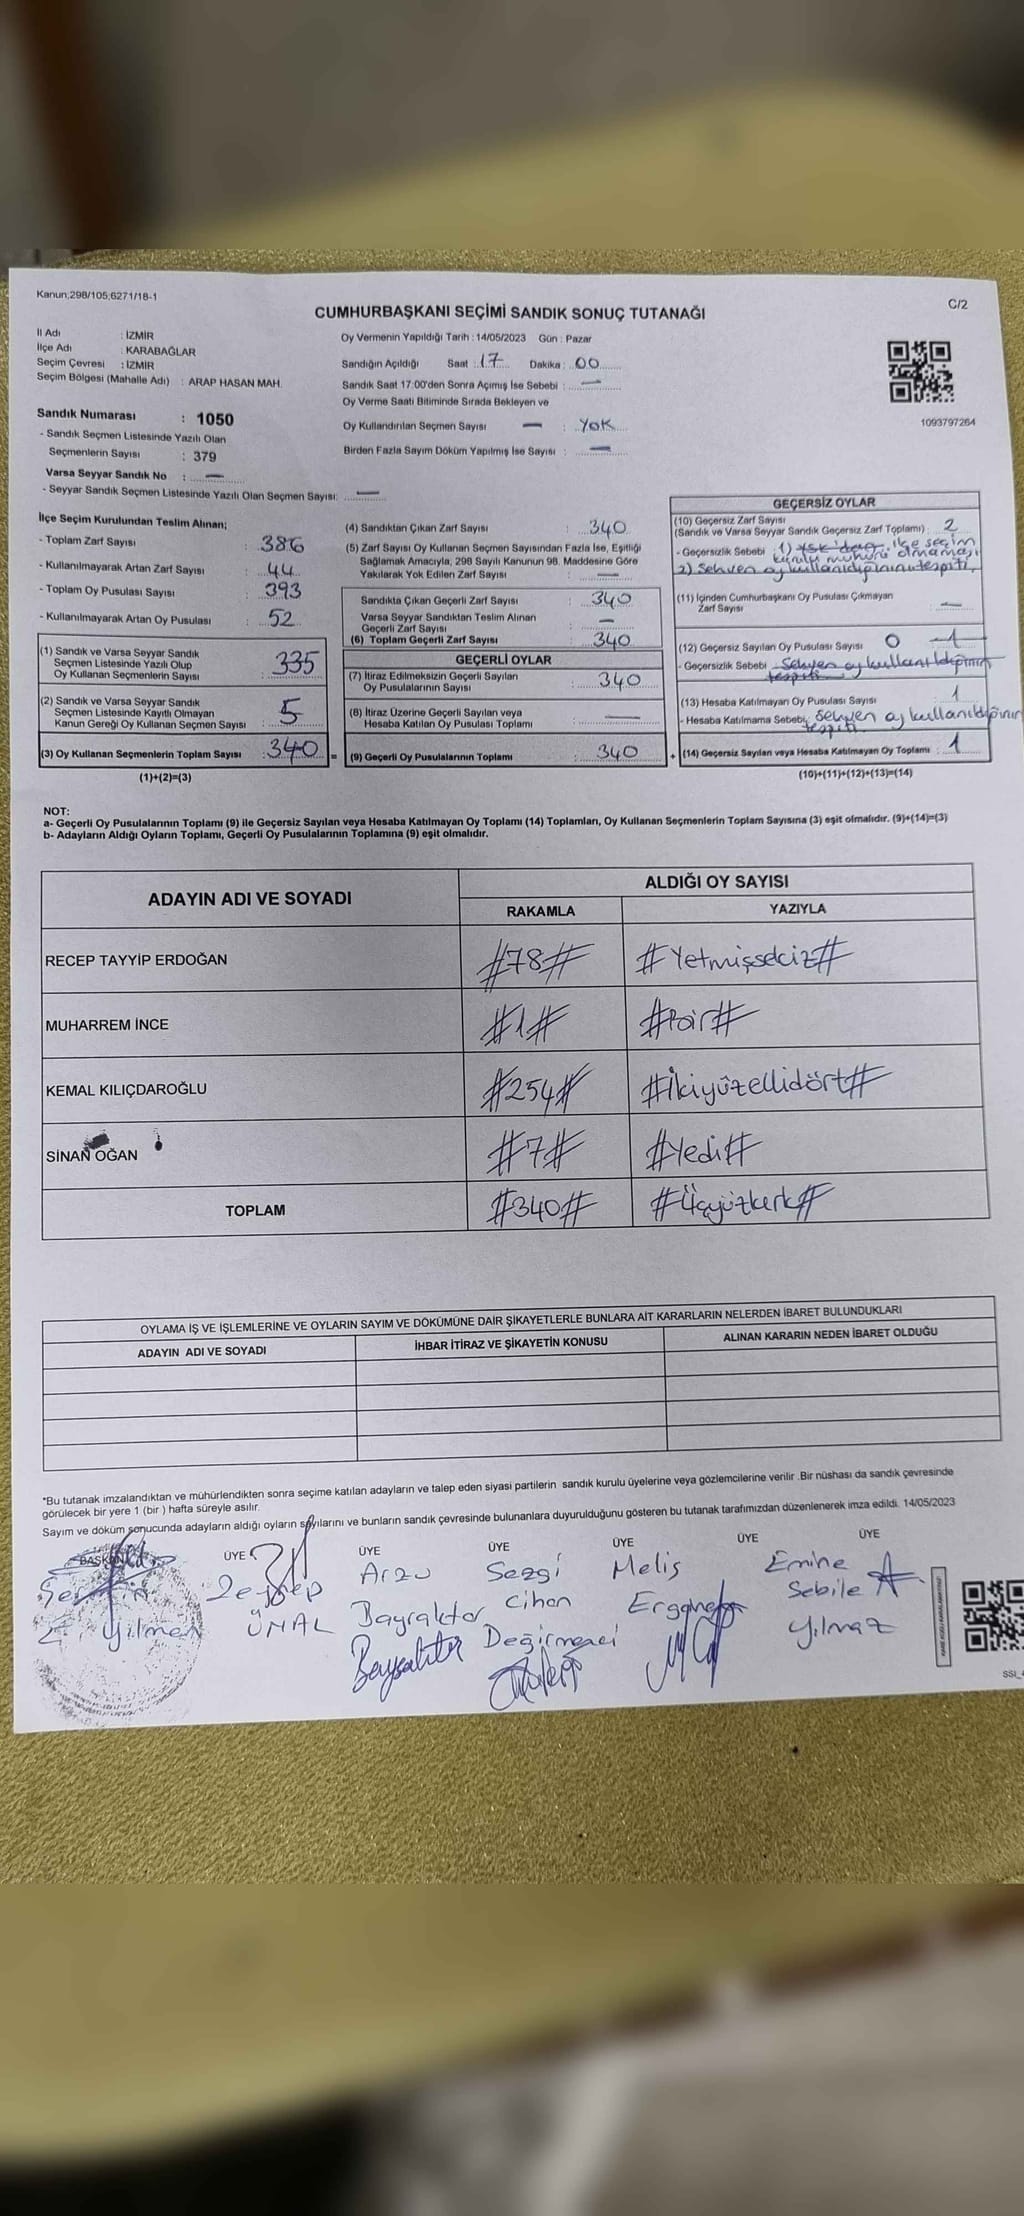 Kanun;298/105;6271/18-1
C/2
CUMHURBAŞKANI SEÇİMİ SANDIK SONUÇ TUTANAĞI
İl Adı : İZMİR
İlçe Adı : KARABAĞLAR
Seçim Çevresi : İZMİR
Seçim Bölgesi (Mahalle Adı) : ARAP HASAN MAH.
Sandık Numarası : 1050
- Sandık Seçmen Listesinde Yazılı Olan
Seçmenlerin Sayısı : 379
Varsa Seyyar Sandık No : —
- Seyyar Sandık Seçmen Listesinde Yazılı Olan Seçmen Sayısı: —
Oy Vermenin Yapıldığı Tarih : 14/05/2023 Gün : Pazar
Sandığın Açıldığı Saat : 17 Dakika : 00
Sandık Saat 17:00'den Sonra Açımış İse Sebebi : —
Oy Verme Saati Bitiminde Sırada Bekleyen ve
Oy Kullandırılan Seçmen Sayısı — : Yok
Birden Fazla Sayım Döküm Yapılmış İse Sayısı : —
1093797264
İlçe Seçim Kurulundan Teslim Alınan;
- Toplam Zarf Sayısı : 386
- Kullanılmayarak Artan Zarf Sayısı : 44
- Toplam Oy Pusulası Sayısı : 393
- Kullanılmayarak Artan Oy Pusulası : 52
(1) Sandık ve Varsa Seyyar Sandık
Seçmen Listesinde Yazılı Olup
Oy Kullanan Seçmenlerin Sayısı : 335
(2) Sandık ve Varsa Seyyar Sandık
Seçmen Listesinde Kayıtlı Olmayan
Kanun Gereği Oy Kullanan Seçmen Sayısı : 5
(3) Oy Kullanan Seçmenlerin Toplam Sayısı : 340 =
(1)+(2)=(3)
(4) Sandıktan Çıkan Zarf Sayısı : 340
(5) Zarf Sayısı Oy Kullanan Seçmen Sayısından Fazla İse, Eşitliği
Sağlamak Amacıyla, 298 Sayılı Kanunun 98. Maddesine Göre
Yakılarak Yok Edilen Zarf Sayısı : —
Sandıkta Çıkan Geçerli Zarf Sayısı : 340
Varsa Seyyar Sandıktan Teslim Alınan
Geçerli Zarf Sayısı : —
(6) Toplam Geçerli Zarf Sayısı : 340
GEÇERLİ OYLAR
(7) İtiraz Edilmeksizin Geçerli Sayılan
Oy Pusulalarının Sayısı : 340
(8) İtiraz Üzerine Geçerli Sayılan veya
Hesaba Katılan Oy Pusulası Toplamı : —
(9) Geçerli Oy Pusulalarının Toplamı : 340 +
GEÇERSİZ OYLAR
(10) Geçersiz Zarf Sayısı
(Sandık ve Varsa Seyyar Sandık Geçersiz Zarf Toplamı) : 2
- Geçersizlik Sebebi : 1) ilçe seçim
kurulu mührü olmaması
2) Sehven oy kullanıldığının tespiti
(11) İçinden Cumhurbaşkanı Oy Pusulası Çıkmayan
Zarf Sayısı : —
(12) Geçersiz Sayılan Oy Pusulası Sayısı : 0 1
- Geçersizlik Sebebi : Sehven oy kullanıldığının
tespiti
(13) Hesaba Katılmayan Oy Pusulası Sayısı : 1
- Hesaba Katılmama Sebebi: Sehven oy kullanıldığının
tespiti
(14) Geçersiz Sayılan veya Hesaba Katılmayan Oy Toplamı : 1
(10)+(11)+(12)+(13)=(14)
NOT:
a- Geçerli Oy Pusulalarının Toplamı (9) ile Geçersiz Sayılan veya Hesaba Katılmayan Oy Toplamı (14) Toplamları, Oy Kullanan Seçmenlerin Toplam Sayısına (3) eşit olmalıdır. (9)+(14)=(3)
b- Adayların Aldığı Oyların Toplamı, Geçerli Oy Pusulalarının Toplamına (9) eşit olmalıdır.
ADAYIN ADI VE SOYADI ALDIĞI OY SAYISI
RAKAMLA YAZIYLA
RECEP TAYYİP ERDOĞAN #78# #Yetmişsekiz#
MUHARREM İNCE #1# #Bir#
KEMAL KILIÇDAROĞLU #254# #İkiyüzellidört#
SİNAN OĞAN #7# #Yedi#
TOPLAM #340# #Üçyüzkırk#
OYLAMA İŞ VE İŞLEMLERİNE VE OYLARIN SAYIM VE DÖKÜMÜNE DAİR ŞİKAYETLERLE BUNLARA AİT KARARLARIN NELERDEN İBARET BULUNDUKLARI
ADAYIN ADI VE SOYADI İHBAR İTİRAZ VE ŞİKAYETİN KONUSU ALINAN KARARIN NEDEN İBARET OLDUĞU
*Bu tutanak imzalandıktan ve mühürlendikten sonra seçime katılan adayların ve talep eden siyasi partilerin sandık kurulu üyelerine veya gözlemcilerine verilir .Bir nüshası da sandık çevresinde
görülecek bir yere 1 (bir ) hafta süreyle asılır.
Sayım ve döküm sonucunda adayların aldığı oyların sayılarını ve bunların sandık çevresinde bulunanlara duyurulduğunu gösteren bu tutanak tarafımızdan düzenlenerek imza edildi. 14/05/2023
BAŞKAN ÜYE ÜYE ÜYE ÜYE ÜYE ÜYE
Zeynep ÜNAL
Arzu Bayraktar
Sezgi Cihan Değirmenci
Melis
Emine Sebile Yılmaz
Yılmaz